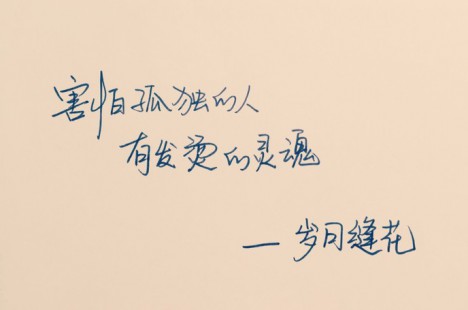 害怕孤独的人
有发烫的灵魂
— 岁月缝花